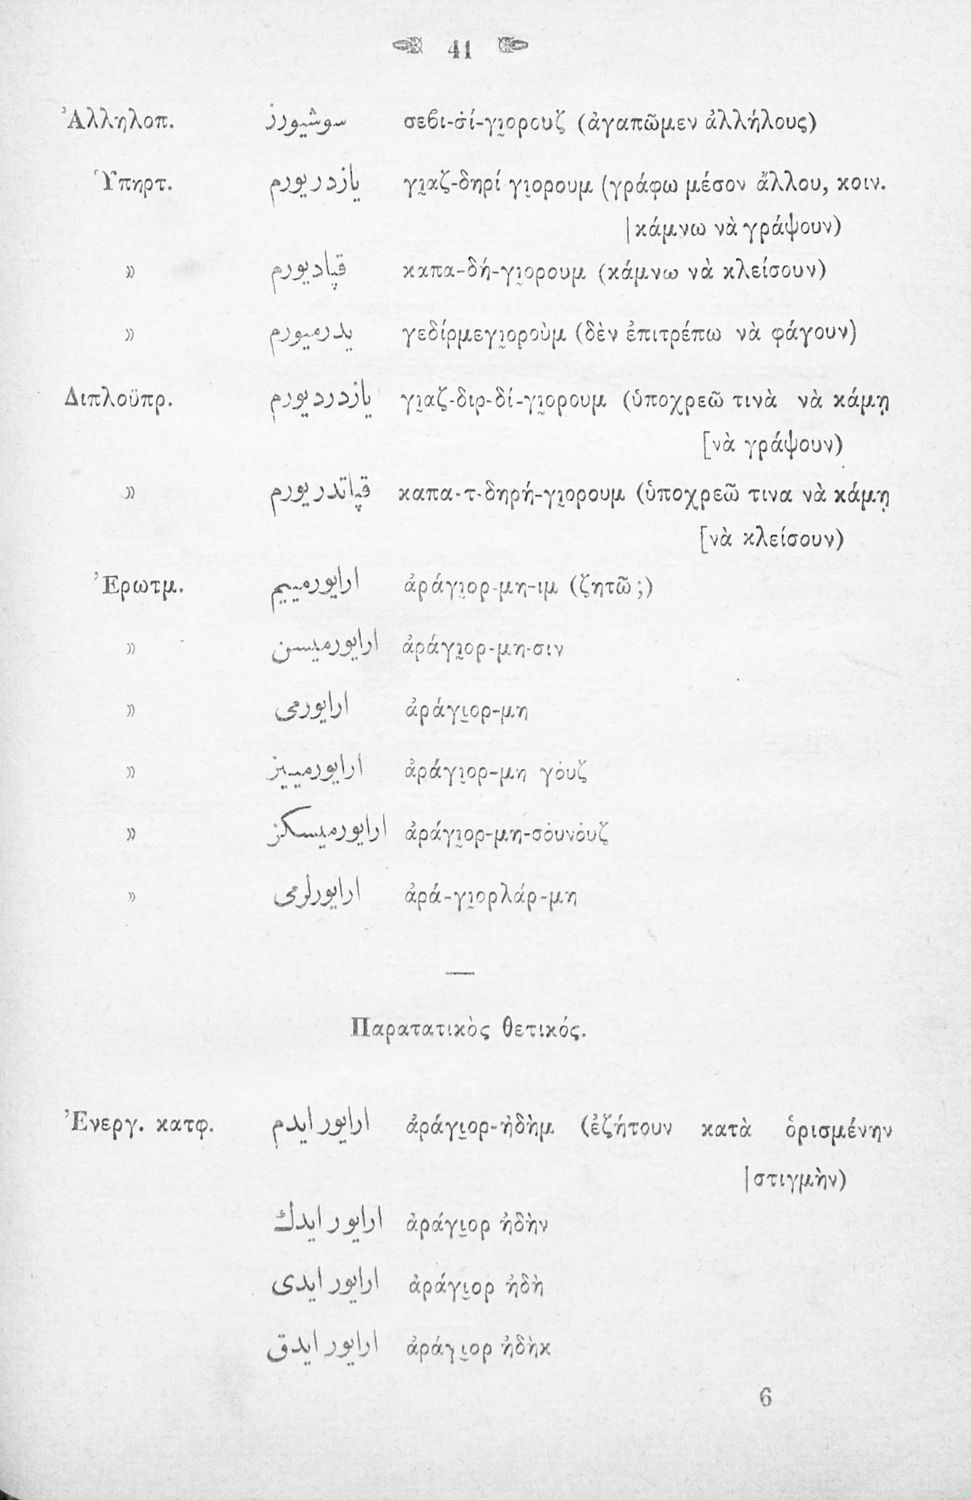 41
Ἀλληλοπ. سوشیورز σεβι-σί-γιορουζ (ἀγαπῶμεν ἀλλήλους)
Ὑπηρτ. یازدریورم γιαζ-δηρί γιορουμ (γράφω μέσον ἄλλου, κοιν.
|κάμνω νὰ γράψουν)
» قپادیورم καπα-δή-γιορουμ (κάμνω νὰ κλείσουν)
» یدرمیورم γεδίρμεγιοροὺμ (δὲν ἐπιτρέπω νὰ φάγουν)
Διπλοϋπρ. یازدردیورم γιαζ-διρ-δί-γιορουμ (ὑποχρεῶ τινὰ νὰ κάμῃ
[νὰ γράψουν)
» قپاتدریورم καπα-τ-δηρή-γιορουμ (ὑποχρεῶ τινα νὰ κάμῃ
[νὰ κλείσουν)
Ἐρωτμ. ارایورمییم ἀράγιορ-μη-ιμ (ζητῶ ;)
» ارایورمیسن ἀράγιορ-μη-σιν
» ارایورمی ἀράγιορ-μη
» ارایورمییز ἀράγιορ-μη γὀυζ
» ارایورمیسکز ἀράγιορ-μη-σὀυνὀυζ
» ارایورلرمی ἀρά-γιορλάρ-μη
Παρατατικὸς θετικός.
Ἐνεργ. κατφ. ارایور ایدم ἀράγιορ-ἠδὴμ (ἐζήτουν κατὰ ὁρισμένην
|στιγμὴν)
ارایور ایدك ἀράγιορ ἠδὴν
ارایور ایدی ἀράγιορ ἠδὴ
ارایور ایدق ἀράγιορ ἠδὴκ
6